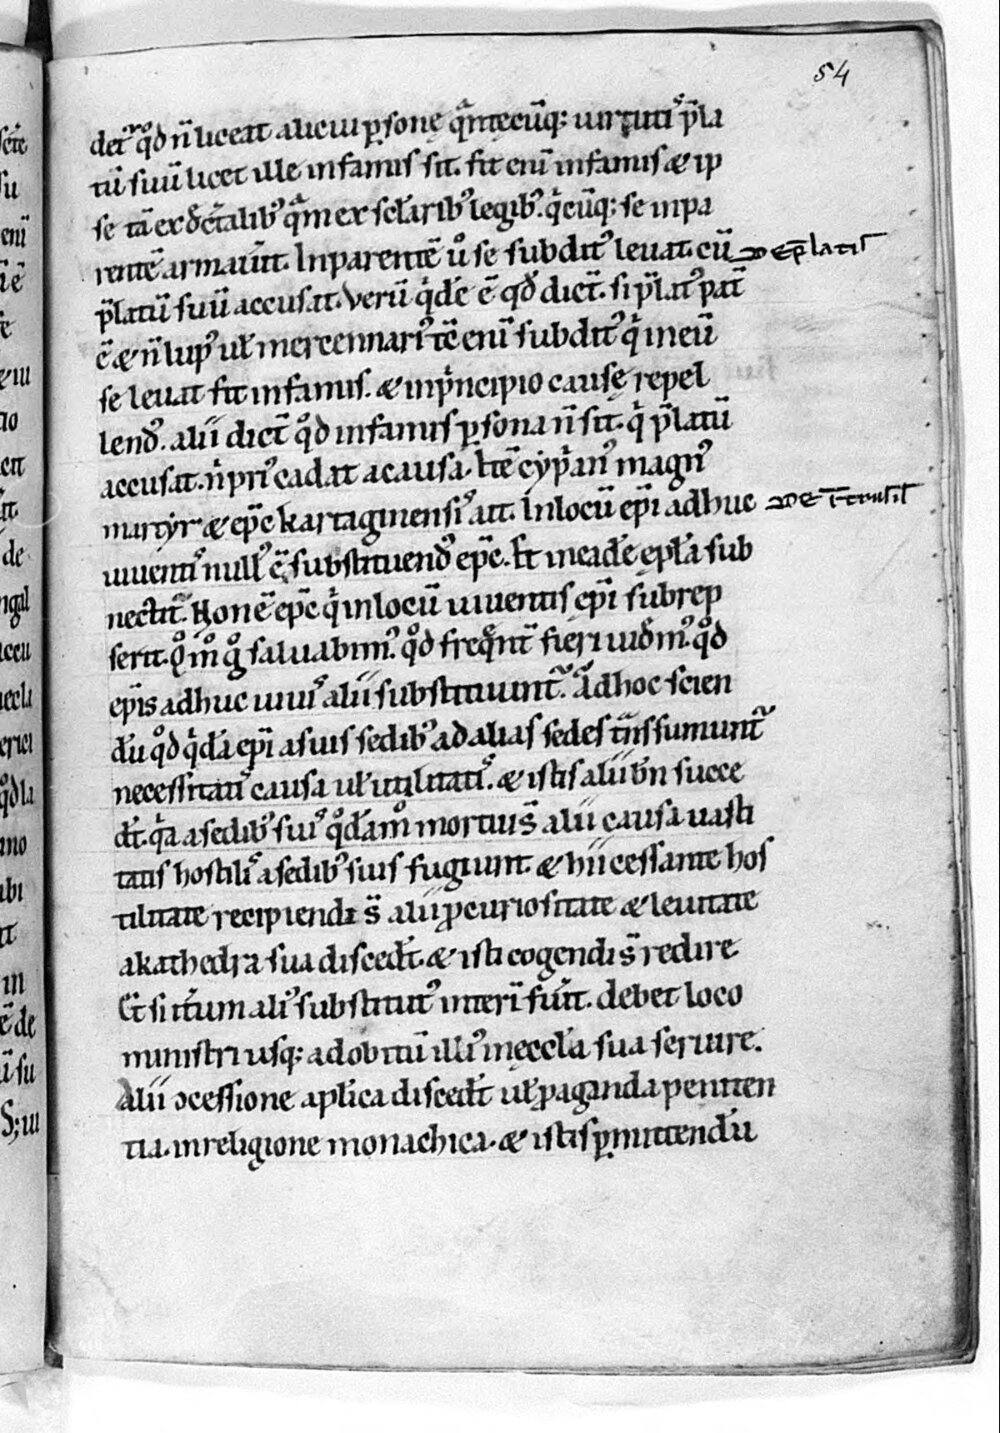 54
det͛ qͦd n̄ liceat alicui ꝑsonę qͣntecūq; uirtutiˢ p̄la
tū suū licet ille infamis sit. fit enī infamis & ip
se tā ex dēctalibꝰ qͣm ex sclaribꝰ legibꝰ. qͥcūq; se in pa
rentē armauit̄. In parentē u̾o se subditꝰ leuat. cū
p̄latū suū accusat. Verū qͥdē ē qd̄ dict̄. si p̄latꝰ pat̄
ē & n̄ lupꝰ uł mercennariꝰ. tc̄ enī subditꝰ qͥ in eū
se leuat fit infamis. & in pͥncipio causę repel
lendꝰ. alii dict̄ qͦd infamis ꝑsona n̄ sit. qͥ p̄latū
accusat. n̄ priꝰ cadat a causa. Itē cyp̄anꝰ magnꝰ
martyr & ep̄c kartaginensiˢ ait. In locū ep̄i adhuc
uiuentiˢ nullꝰ ē substituendꝰ ep̄c. Et in eadē ep̄ła sub
nectit. Non ē ep̄c qͥ in locū uiuentis ep̄i subrep
serit. Qͦmͦ gͦ saluabimꝰ. qͦd freqͣnt̄ fieri uidemꝰ. qͦd
ep̄is adhuc uiuiˢ alii substituunt᷑. Ad hoc scien
dū qͦd qͥdā ep̄i a suis sedibꝰ ad alias sedes tn̄ssumunt᷑
necessitatiˢ causa uł utilitatiˢ. & istis alii bn̄ succe
dt̄. qͥa a sedibꝰ suiˢ qͦdāmͦ mortui s̄. alii causa uasti
tatis hostiliˢ a sedibꝰ suis fugiunt. & hii cessante hos
tilitate recipiendi s̄. alii ꝓ curiositate & leuitate
a kathedra sua discedt̄. & isti cogendi s̄ redire
Et si itͥum aliˢ substitutꝰ interī fu͛it. debet loco
ministri usq; ad obitū illiꝰ in ęccła sua seruire.
Alii ↄcessione aplīca discedt̄ uł ꝓ aganda peniten
tia. in religione monachica. & istis ꝑmittendū
DE p̄latis